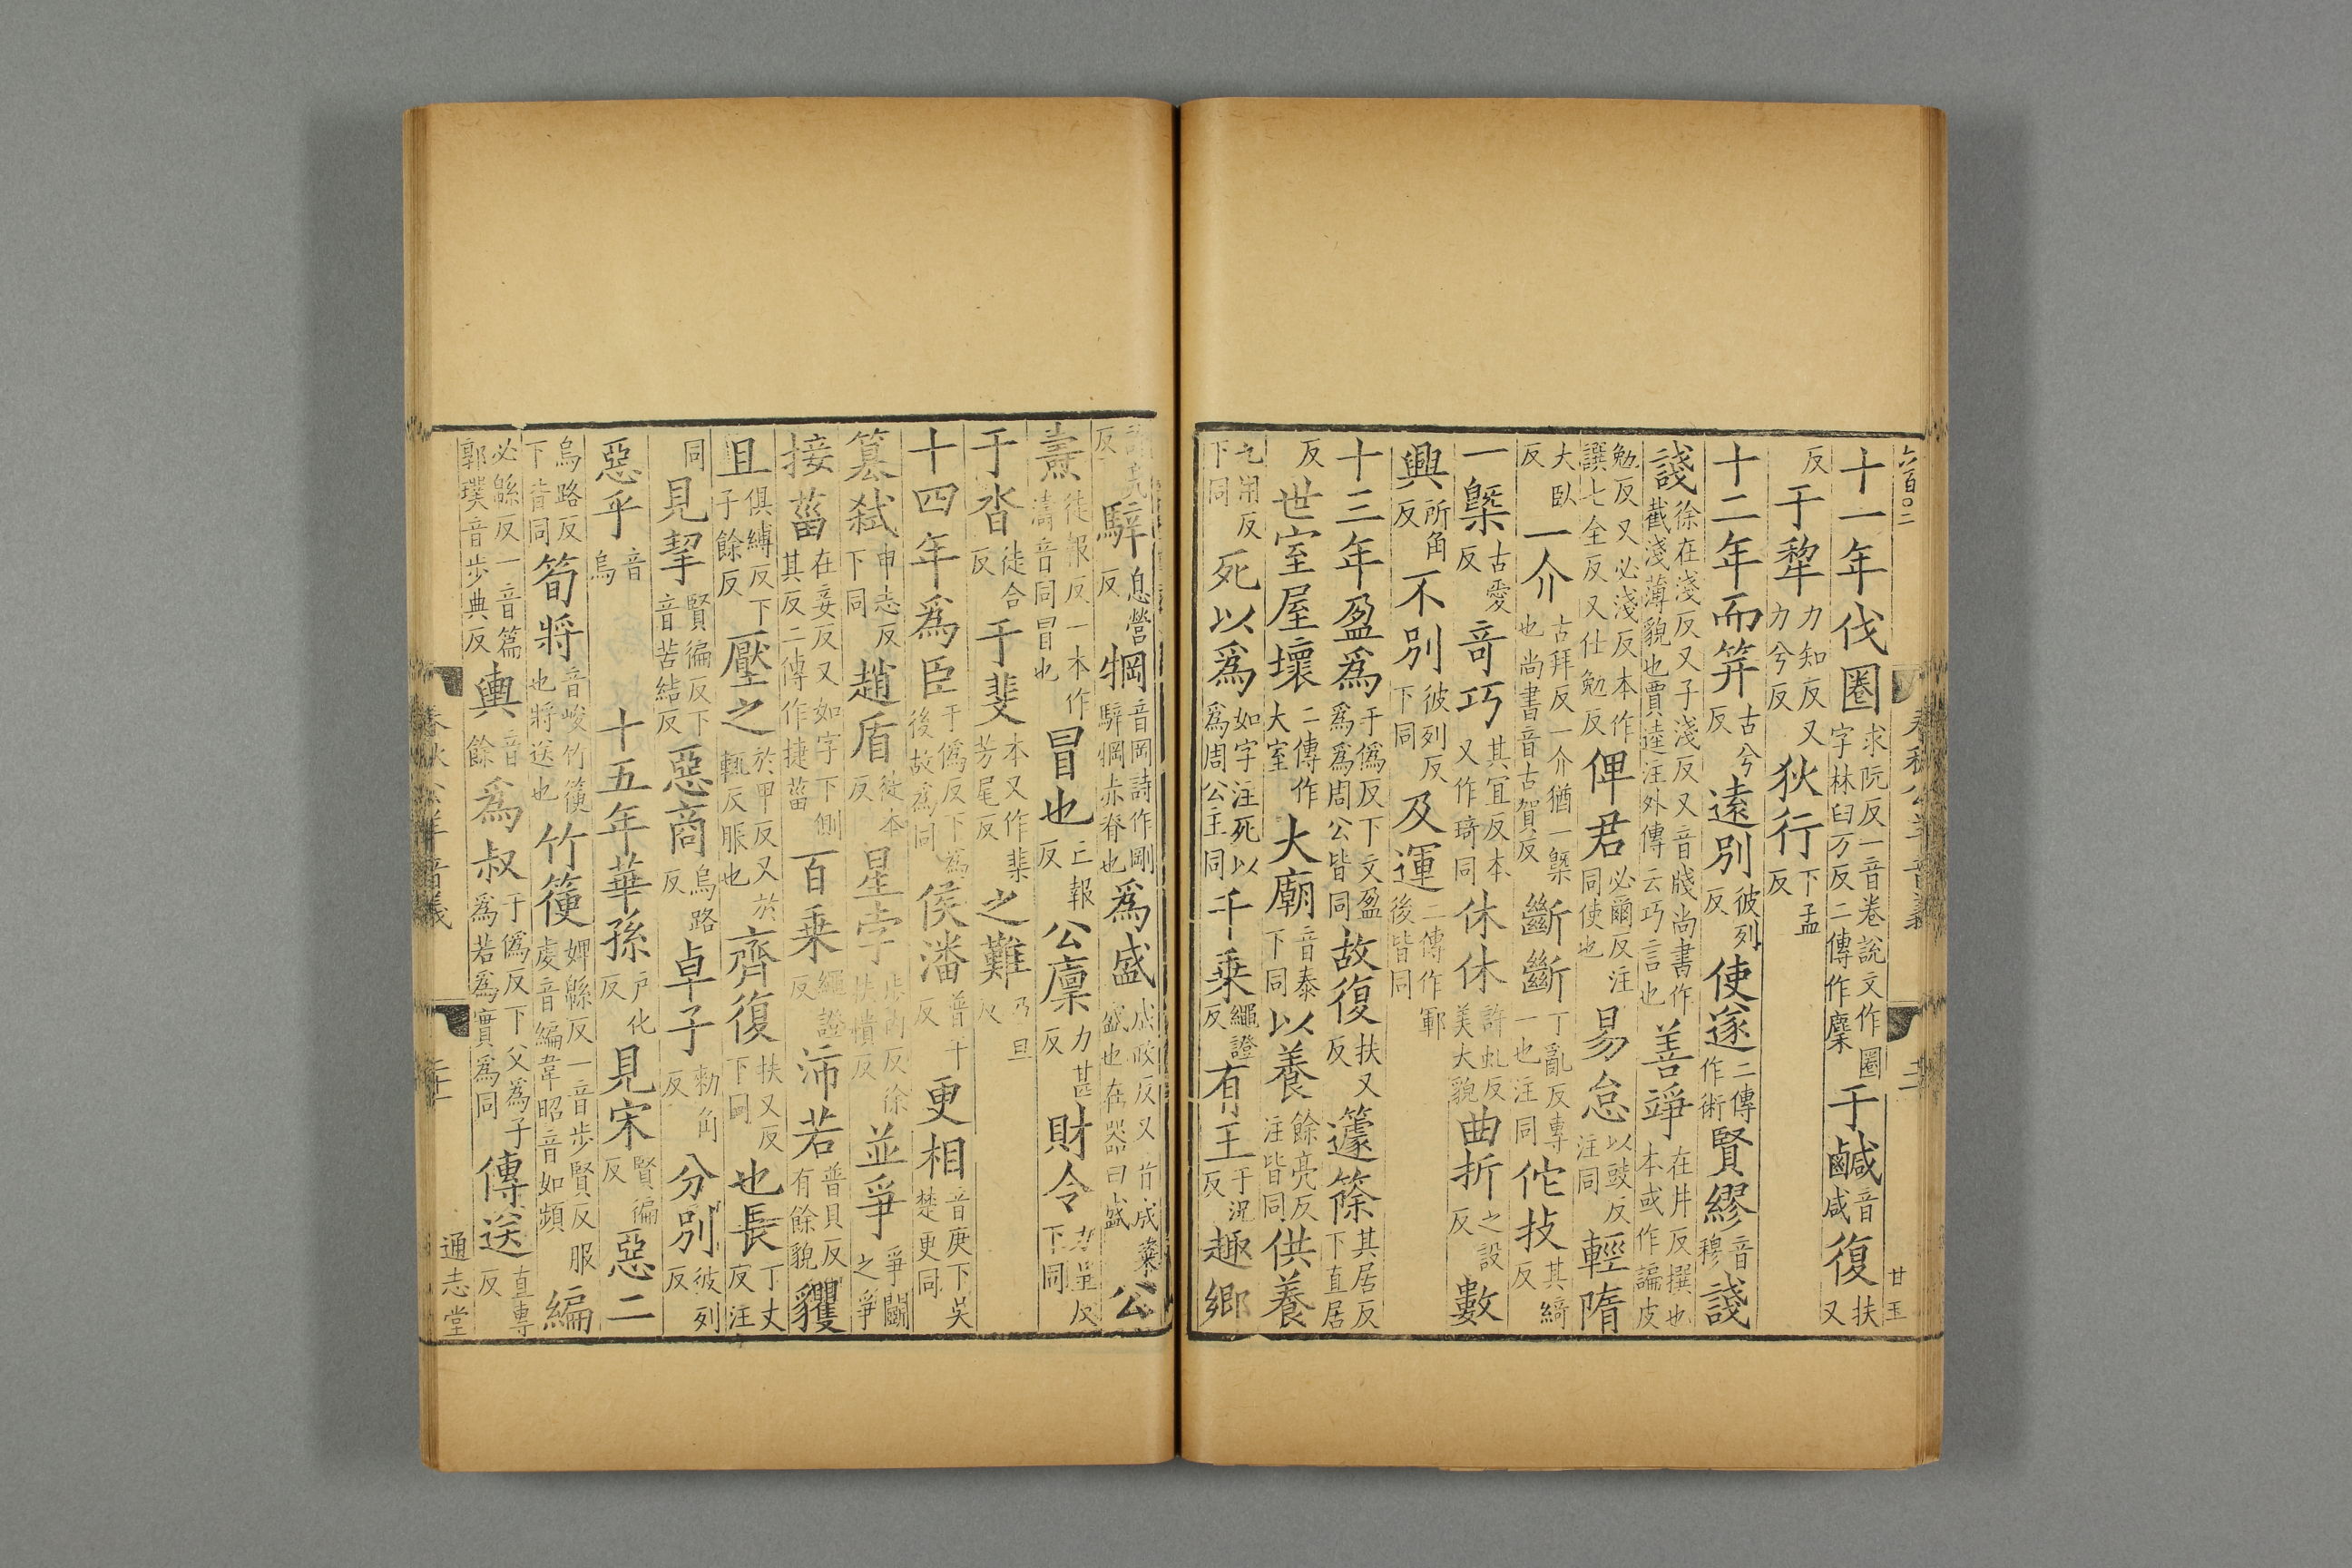 六百〇二
春秋公羊音義
甘玉
十一年伐圈求阮反一音卷説文作圈字林臼万反二傳作麇于鹹音咸復扶又
反于犂力知反又力兮反狄行下孟反
十二年而笄古兮反遠別彼列反使遂二傳作術賢繆音穆諓
諓徐在淺反又子淺反又音牋尚書作截淺薄貌也賈逵注外傳云巧言也善竫在井反撰也本或作諞皮
勉反又必淺反本作譔七全反又仕勉反俾君必爾反注同使也易怠以豉反注同輕隋
大臥反一介古拜反一介猶一槩也尚書音古賀反斷斷丁亂反專一也注同佗技其綺反
一槩古愛反奇巧其宜反本又作琦同休休許虬反美大貌曲折之設反數
興所角反不別彼列反下同及運二傳作鄆後皆同
十三年盈爲于僞反下文盈爲爲周公皆同故復扶又反籧篨其居反下直居
反世室屋壞二傳作大室大廟音泰下同以養餘亮反注皆同供養
九用反下同死以爲如字注死以爲周公王同千乘繩證反有王于況反趣鄉
許亮反騂息營反犅音岡詩作剛騂犅赤脊也爲盛成政反又音成粢盛也在器曰盛公
燾徒報反一本作濤音同冒也冒也亡報反公廩力甚反財令力呈反下同
于沓徒合反于斐本又作棐芳尾反之難乃旦反
十四年爲臣于僞反下爲後故爲同侯潘普干反更相音庚下吳楚更同
篡弑申志反下同趙盾徒本反星孛步內反徐扶憒反並爭爭鬭之爭
接菑在妾反又如字下側其反二傳作捷菑百乘繩證反沛若普貝反有餘貌貜
且俱縛反下子餘反壓之於甲反又於輒反服也齊復扶又反下同也長丁丈反注
同見挈賢徧反下音苦結反惡商烏路反卓子勑角反分別彼列反
惡乎音烏十五年華孫戶化反見宋賢徧反惡二
烏路反下皆同筍將音峻竹箯也將送也竹箯婢緜反一音步賢反服虔音編韋昭音如頻編
必緜反一音篇郭璞音步典反輿音餘爲叔于僞反下父爲子爲若爲實爲同傳送直專反
春秋公羊音義
通志堂